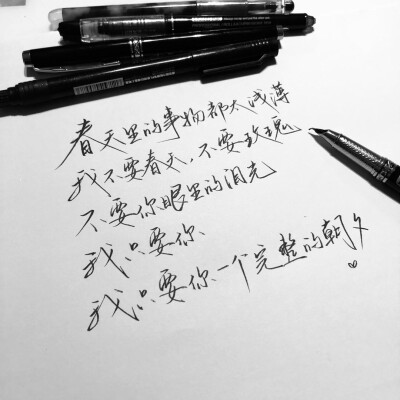 春天里的事物都太浅薄
我不要春天，不要玫瑰
不要你眼里的泪光
我只要你
我只要你一个完整的朝夕